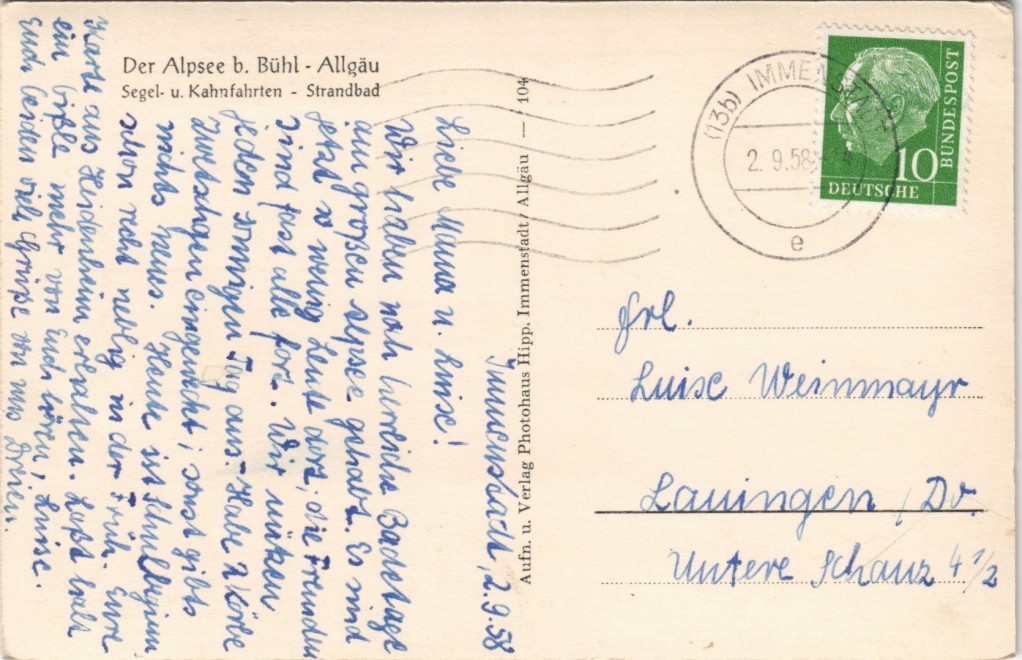 Der Alpsee b. Bühl - Allgäu
Segel- u. Kahnfahrten - Strandbad
Immenstadt, 2.9.58
Liebe Mama u. Luise!
Wir haben noch herrliche Badetage
am großen Alpsee gehabt. Es sind
jetzt so wenig Leute dort, die Fremden
sind fast alle fort. Wir nützen
jeden sonnigen Tag aus. Habe 2 Körbe
Zwetschgen eingemacht, sonst gibts
nichts neues. Heute ist Schulbeginn,
schon recht neblig in der Früh. Eure
Karte aus Heidenheim erhalten. Laßt halt
ein bißle mehr von Euch hören, Luise.
Euch beiden viele Grüße von uns Dreien.
Aufn. u. Verlag Photohaus Hipp. Immenstadt / Allgäu — 104
(13b) IMMENSTADT
2.9.58
e
10
DEUTSCHE
BUNDESPOST
Frl.
Luise Weinmayr
Lauingen / Do.
Untere Schanz 4 1/2